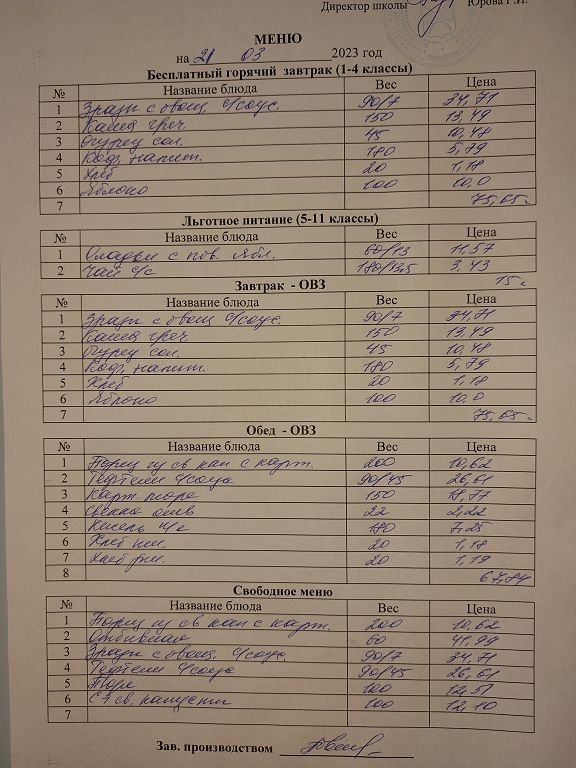 Директор школы Юрова Г.И.
МЕНЮ
на 21 03 2023 год
Бесплатный горячий завтрак (1-4 классы)
№ Название блюда Вес Цена
1 Зразы с овощ. с/соус. 90/7 34,71
2 Каша греч. 150 13,49
3 Огурец сол. 45 10,48
4 Коф. напит. 180 5,79
5 Хлеб 20 1,18
6 Яблоко 100 10,0
7 75,65
Льготное питание (5-11 классы)
№ Название блюда Вес Цена
1 Оладьи с пов. ябл. 60/13 11,57
2 Чай с/с 180/13,5 3,43
15
Завтрак - ОВЗ
№ Название блюда Вес Цена
1 Зразы с овощ с/соус. 90/7 34,71
2 Каша греч. 150 13,49
3 Огурец сол. 45 10,48
4 Коф. напит. 180 5,79
5 Хлеб 20 1,18
6 Яблоко 100 10,0
7 75,65
Обед - ОВЗ
№ Название блюда Вес Цена
1 св кап с карт. 200 10,62
2 Тефтели с/соус 90/45 26,61
3 Карт. пюре 150 18,77
4 22 2,22
5 Кисель 180 7,25
6 Хлеб пш. 20 1,18
7 Хлеб рж. 20 1,19
8 67,84
Свободное меню
№ Название блюда Вес Цена
1 св кап с карт. 200 10,62
2 Отбивная 60 41,99
3 Зразы с овощ. с/соус. 90/7 34,71
4 Тефтели с/соус 90/45 26,61
5 Пюре 100 12,51
6 св. капусты 100 12,10
7
Зав. производством